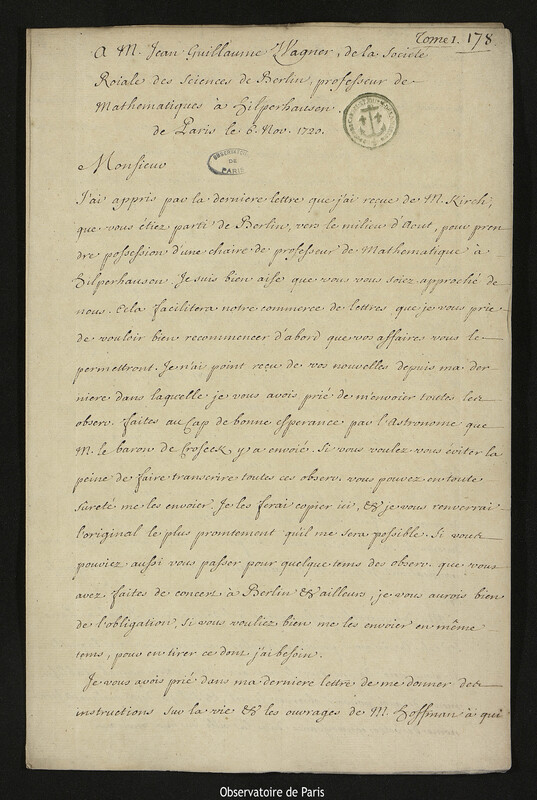 Tome 1. 178
A M. Jean Guillaume Wagner, de la Societé
Roiale des Sciences de Berlin, professeur de
Mathematiques à Hilperhausen
de Paris le 6. Nov. 1720.
OBSERVATOIRE
DE
PARIS
Monsieur
J'ai appris par la derniere lettre que j'ai reçue de M. Kirch,
que vous étiez parti de Berlin, vers le milieu d'Aout, pour pren
dre possession d'une chaire de professeur de Mathematique à
Hilperhausen. Je suis bien aise que vous vous soiez approché de
nous. Cela facilitera notre commerce de lettres que je vous prie
de vouloir bien recommencer d'abord que vos affaires vous le
permettront. Je n'ai point reçu de vos nouvelles depuis ma der
niere dans laquelle je vous avois prié de m'envoier toutes les
observ. faites au Cap de bonne esperance par l'Astronome que
M. le baron de Croseck y a envoié. Si vous voulez vous éviter la
peine de faire transcrire toutes ces observ. vous pouvez en toute
sureté me les envoier. Je les ferai copier ici, & je vous renverrai
l'original le plus promtement qu'il me sera possible. Si vous
pouviez aussi vous passer pour quelque tems des observ. que vous
avez faites de concert à Berlin & ailleurs, je vous aurois bien
de l'obligation, si vous vouliez bien me les envoier en même
tems, pour en tirer ce dont j'ai besoin.
Je vous avois prié dans ma derniere lettre de me donner des
instructions sur la vie & les ouvrages de M. Hoffman à qui
Observatoire de Paris